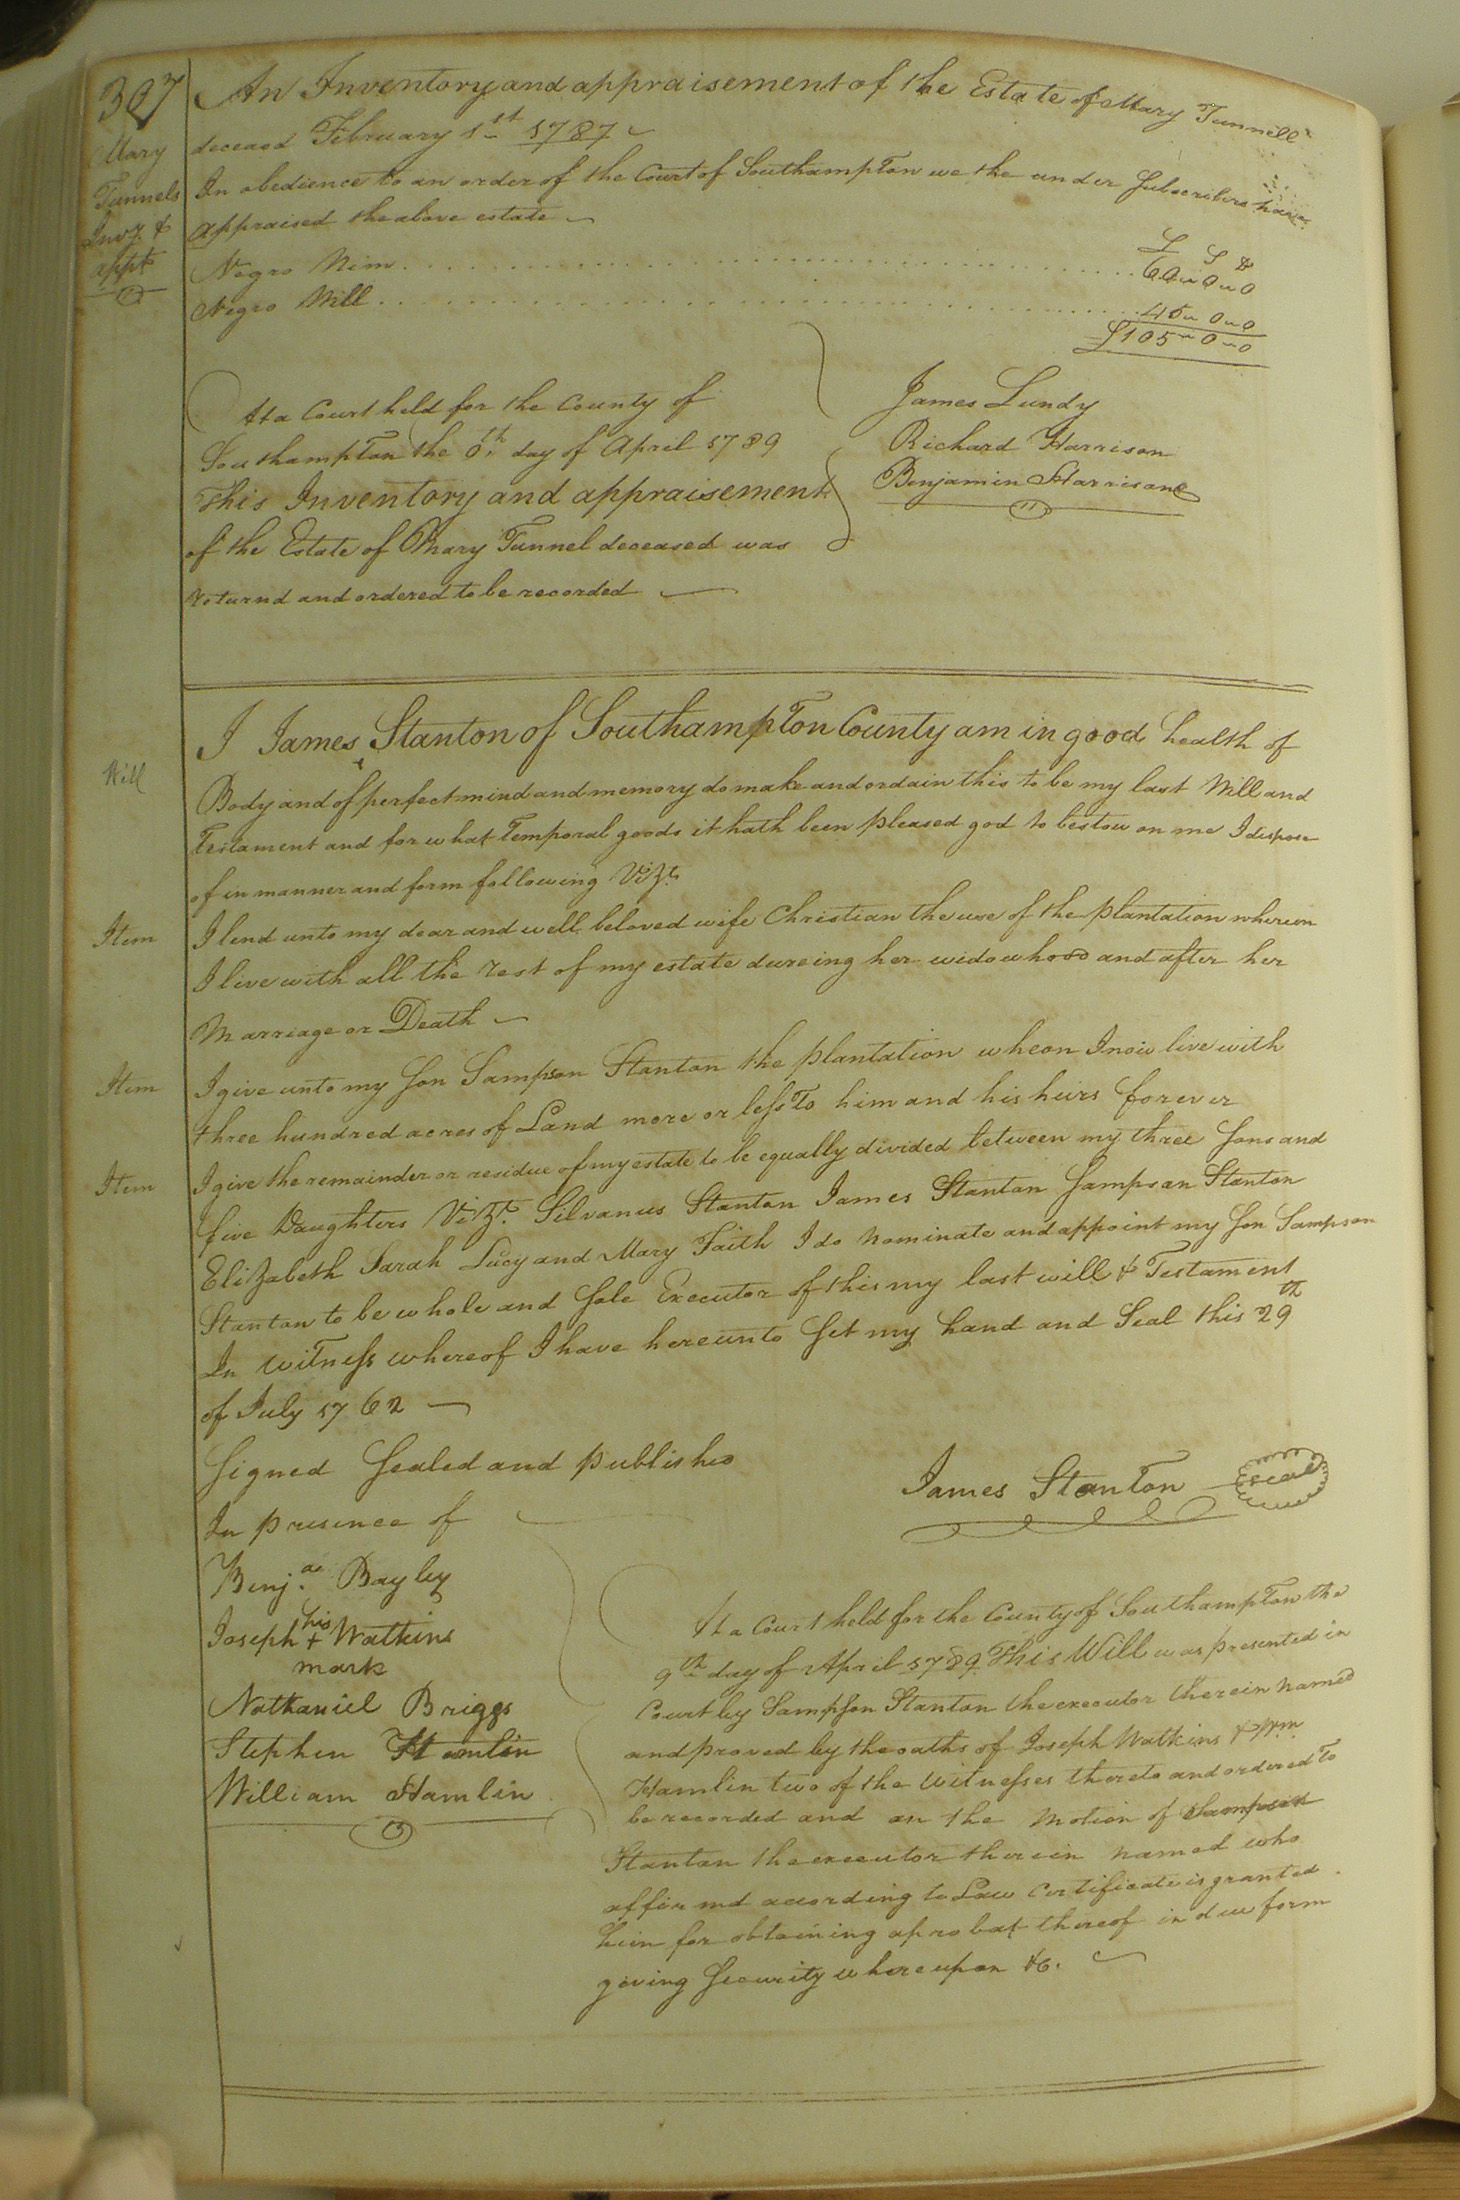 307
Mary
Tunnels
Invy. &
appt.
An Inventory and appraisement of the Estate of Mary Tunnell
deceasd February 1st 1787
In obedience to an order of the Court of Southampton we the under Subscribers have
appraised the above estate
£ S D
Negro Nim 60 " 0 " 0
Negro Will 45 " 0 " 0
£105 " 0 " 0
At a Court held for the County of
Southampton the th day of April 1789
This Inventory and appraisement
of the Estate of Mary Tunnel deceased was
returnd and ordered to be recorded
James Lundy
Richard Harrison
Benjamin Harrison
Will
I James Stanton of Southampton County am in good health of
Body and of perfect mind and memory do make and ordain this to be my last Will and
Testament and for what Temporal goods it hath been pleased god to bestow on me I dispose
of in manner and form following Vizt.
Item I lend unto my dear and well beloved wife Christian the use of the plantation whereon
I live with all the rest of my estate dureing her widowhood and after her
Marriage or Death
Item I give unto my Son Sampson Stanton the plantation wheon I now live with
three hundred acres of Land more or less To him and his heirs forever
Item I give the remainder or residue of my estate to be equally divided between my three Sons and
five Daughters Vizt. Silvanus Stanton James Stanton Sampson Stanton
Elizabeth Sarah Lucy and Mary Faith I do nominate and appoint my Son Sampson
Stanton to be whole and Sole Executor of this my last will & Testament
In witness whereof I have hereunto Set my hand and Seal this 29th
of July 1762
Signed Sealed and published
In presence of
James Stanton seal
Benja. Bayley
Joseph his + Watkins
mark
Nathaniel Briggs
Stephen Hamlin
William Hamlin
At a Court held for the County of Southampton the
9th day of April 1789 This Will was presented in
Court by Sampson Stanton the executor therein named
and proved by the oaths of Joseph Watkins & Wm.
Hamlin two of the witnesses thereto and ordered to
be recorded and on the Motion of Sampson
Stanton the executor therein named who
affirmd according to Law Certificate is granted
him for obtaining a probat thereof in due form
giving Security whereupon &c.